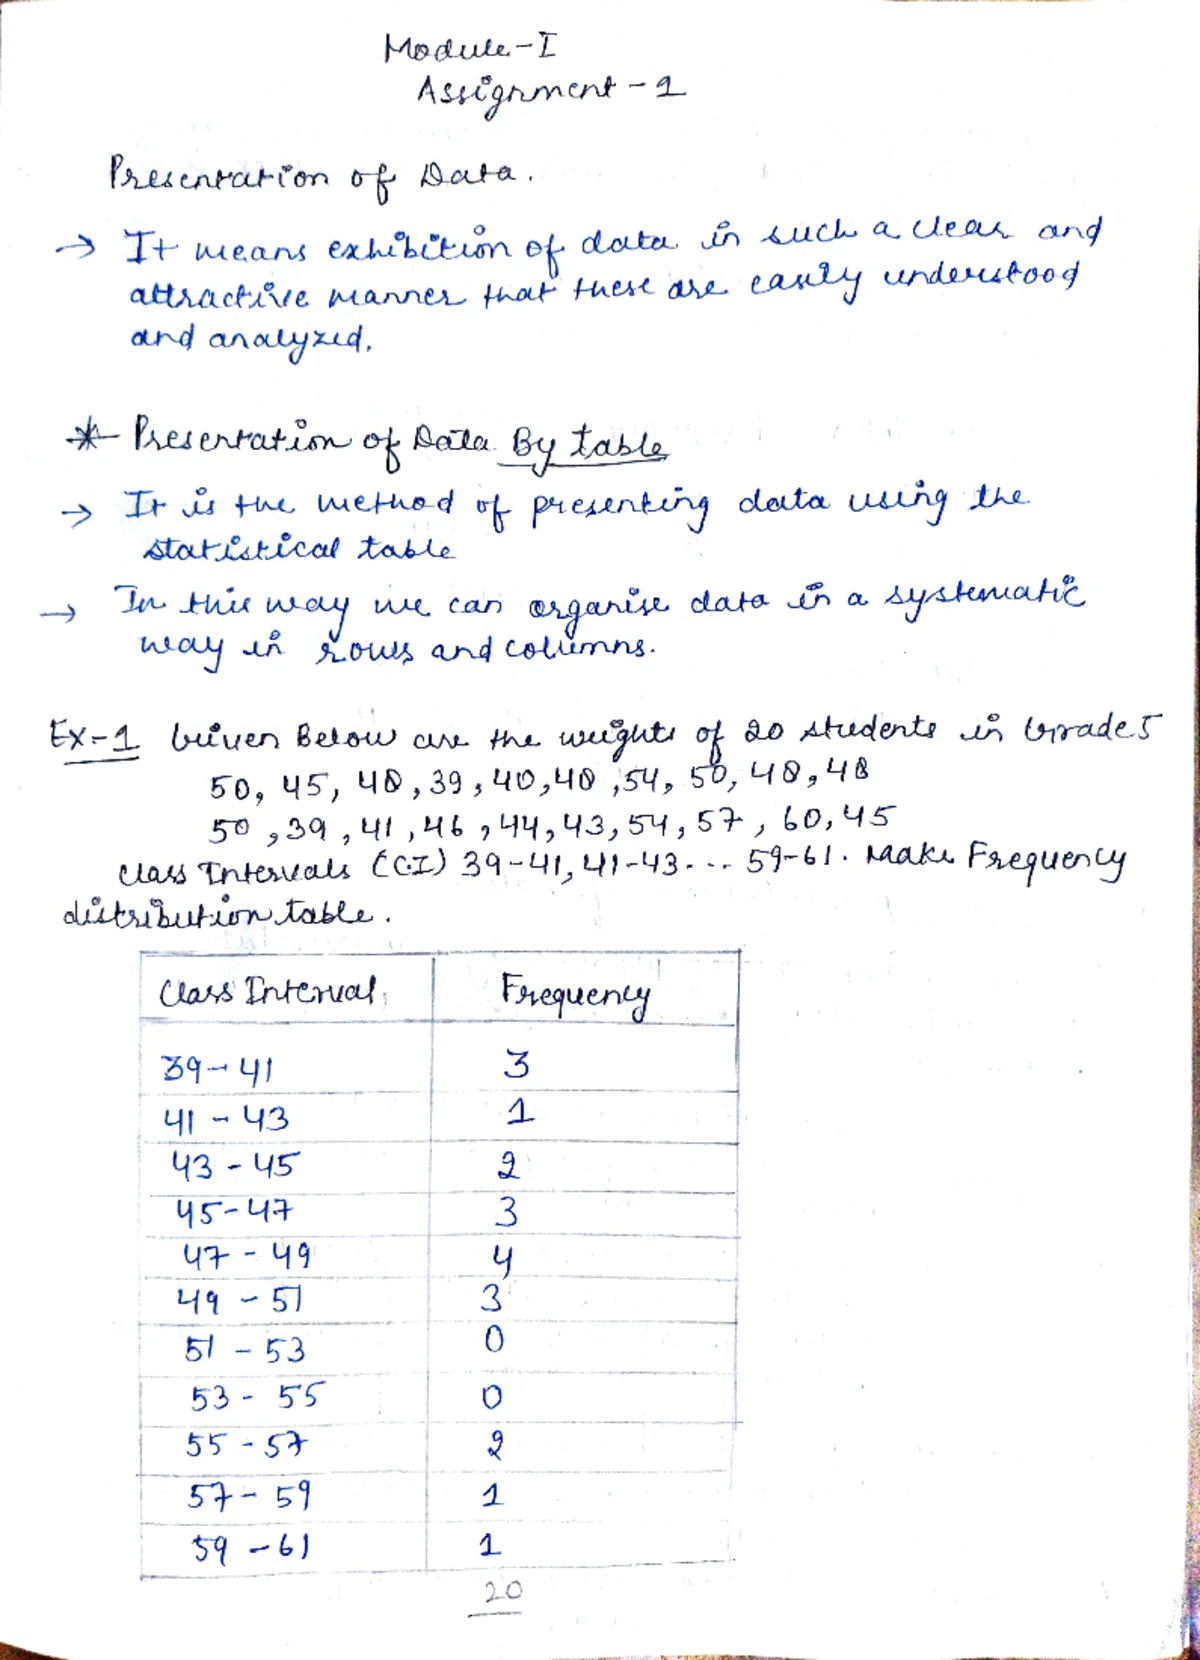 Module-I
Assignment-1
Presentation of Data.
→ It means exhibition of data in such a clear and
attractive manner that these are easily understood
and analyzed.
* Presentation of Data By table
→ It is the method of presenting data using the
statistical table
→ In this way we can organise data in a systematic
way in rows and columns.
Ex-1 Given Below are the weights of 20 students in Grade 5
50, 45, 48, 39, 40, 48, 54, 50, 48, 48
50, 39, 41, 46, 44, 43, 54, 57, 60, 45
Class Intervals (C.I) 39-41, 41-43... 59-61. Make Frequency
distribution table.
Class Interval Frequency
39-41 3
41-43 1
43-45 2
45-47 3
47-49 4
49-51 3
51-53 0
53-55 0
55-57 2
57-59 1
59-61 1
20